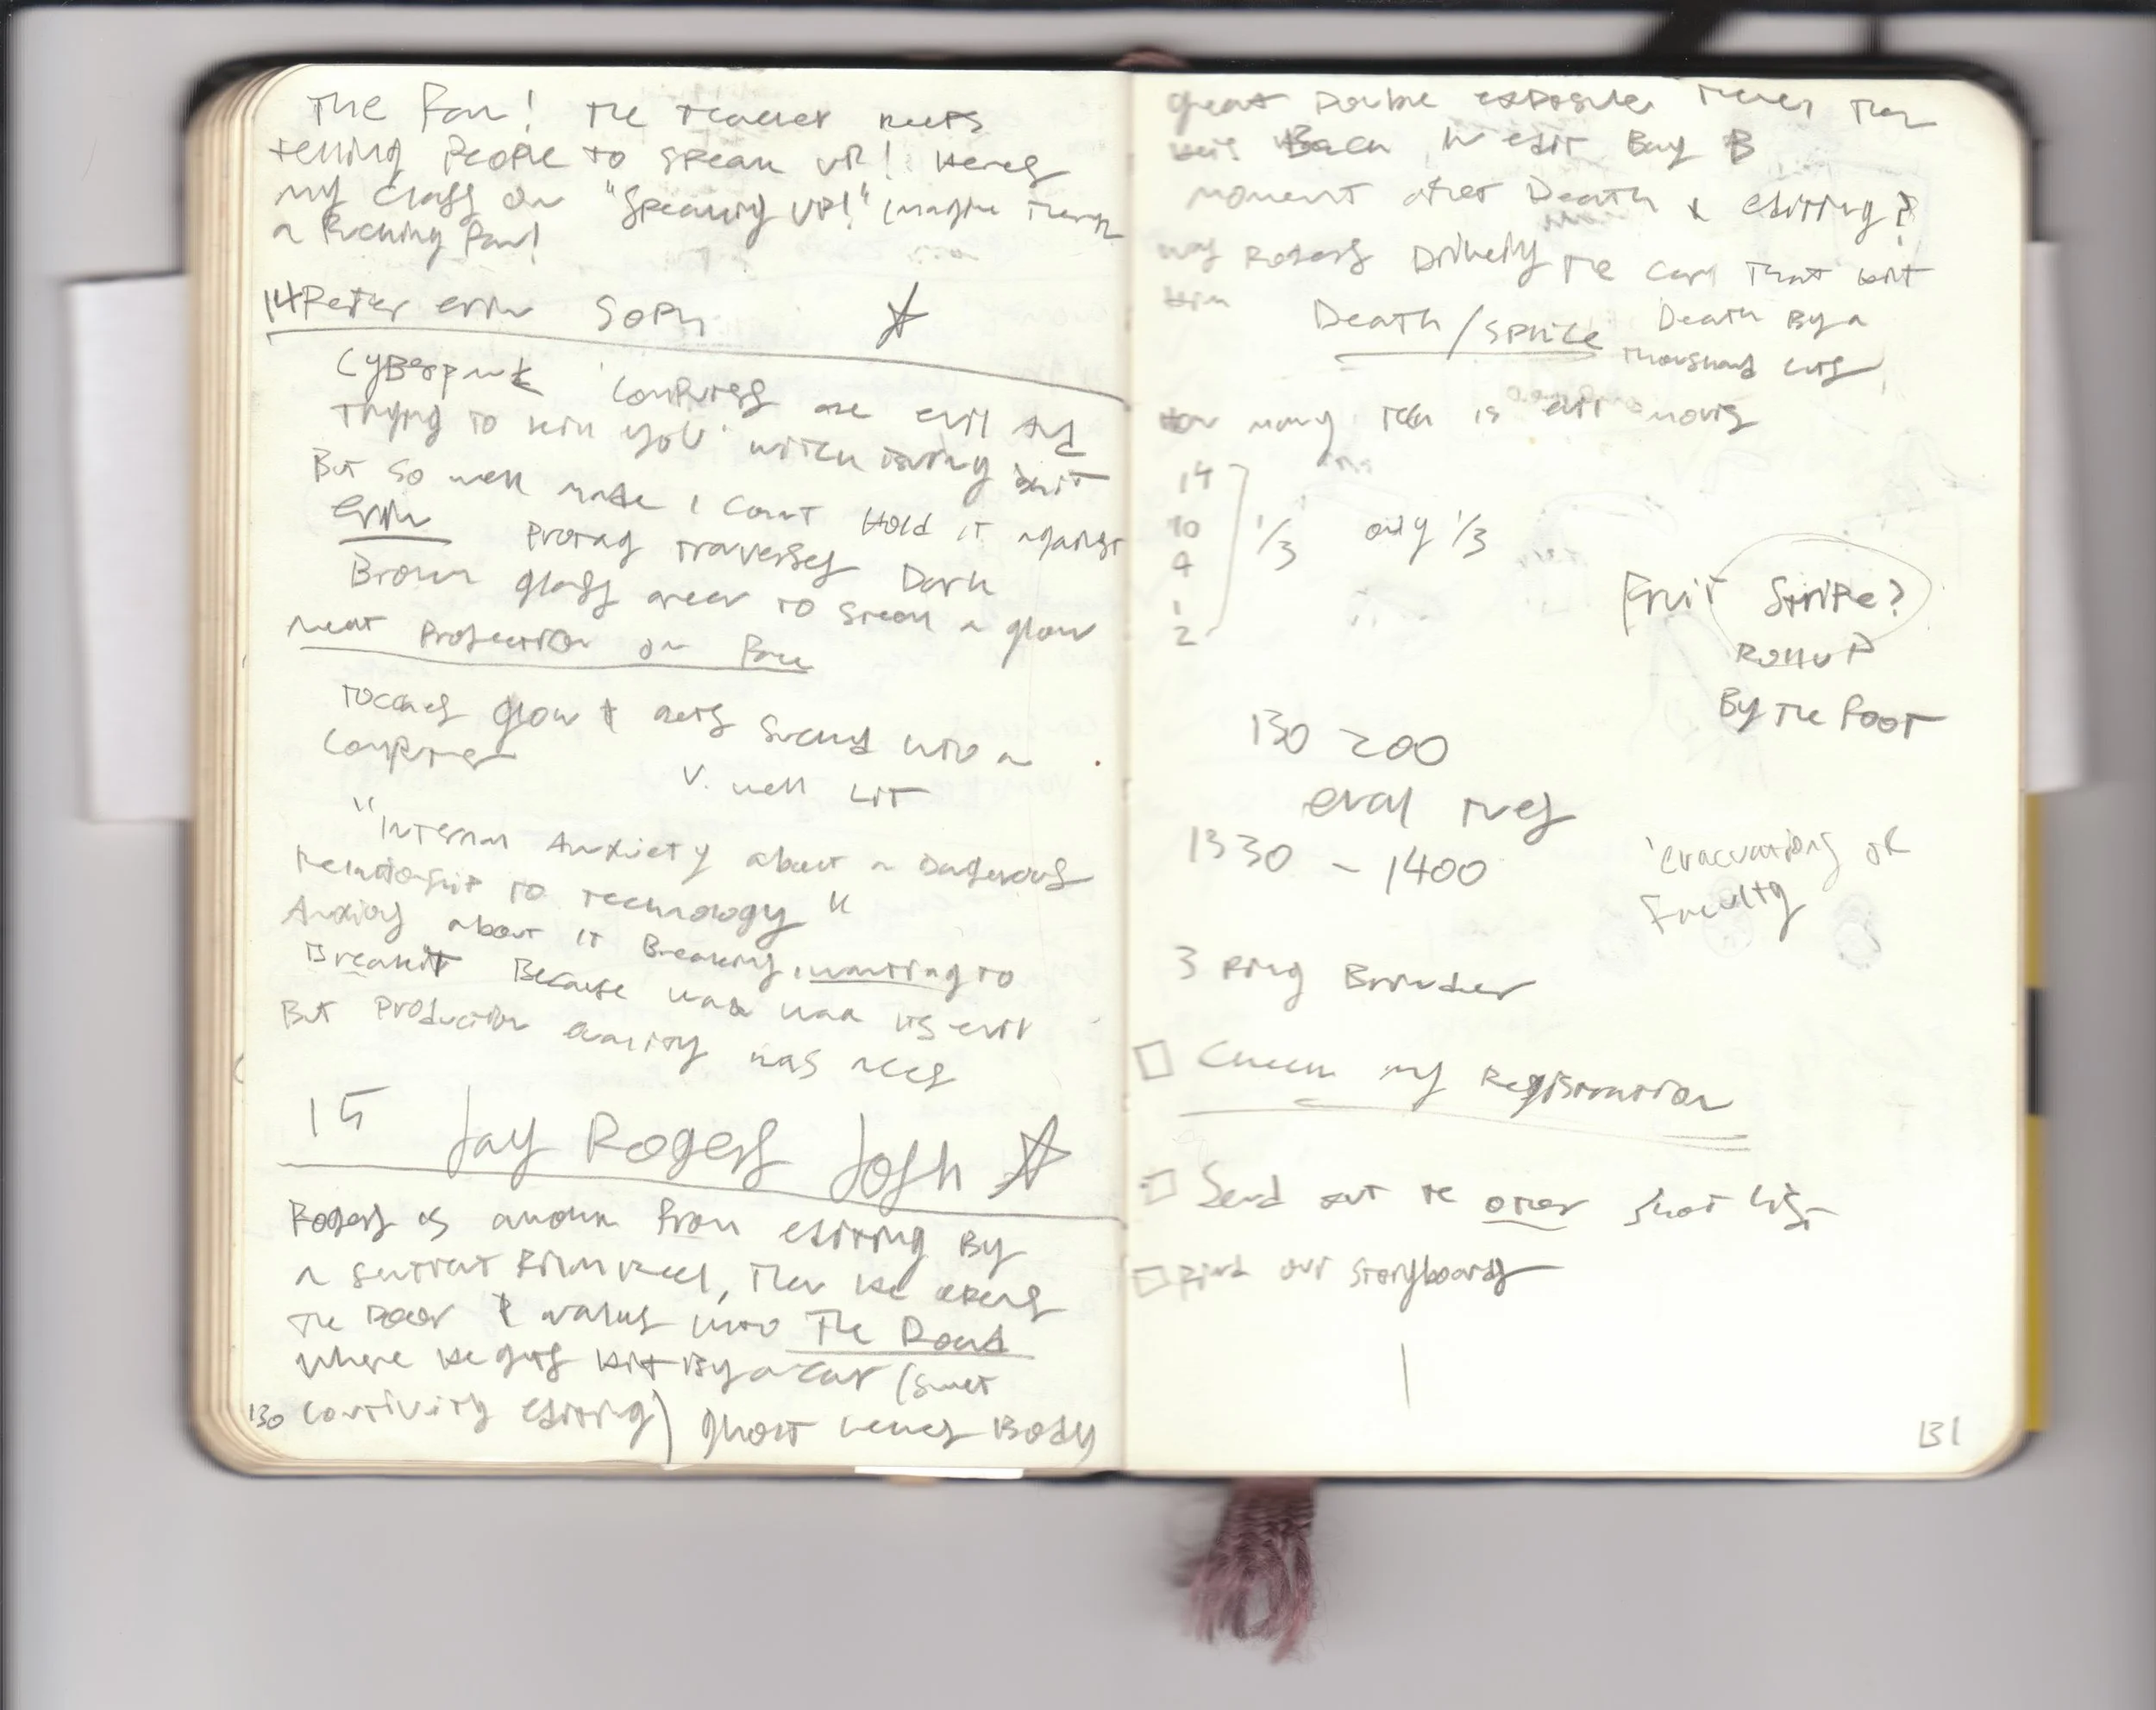 The Fan! The teacher keeps
telling people to speak up! Heres
my class on "Speaking up!" imagine theres
a fucking fan!
14 Peter Erin Soph ☆
Cyberpunk 'computers are evil and
trying to kill you' which is boring shit
But so well made I can't hold it against
Erin Protag traverses Dark
Brown glass area to steal a glow
neat projection on face
Touches glow & gets sucked into a
computer
V. well lit
"Internal Anxiety about a Dangerous
relationship to technology"
Anxiety about it Breaking, wanting to
Break it Because waa waa its evil
But production quality was aces
15 Jay Rogers Josh ☆
Rogers is awoken from editing by
a sentient film reel, then he opens
the Door & walks into The Road
where he gets hit by a car (sweet
continuity editing) ghost leaves Body
130
great Double exposure, then
he's Back in edit Bay B
moment after Death & editing?
was Rogers Driving the car that hit
him
Death / splice Death By a
thousand cuts
How many is evil movies
14
10
4
1
2
1/3 only 1/3
Fruit Stripe?
Roll up
By the foot
130 200
eval tues
1330 - 1400
'evacuations of
Faculty
3 ring Brinder
□ Check my Registration
□ Send out the other shot list
□ Find our storyboards
131